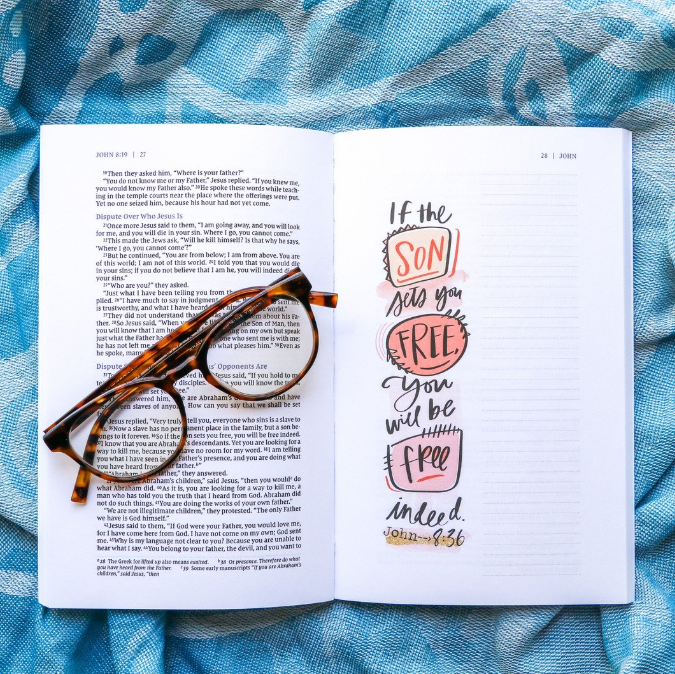 JOHN 8:19 | 27
19Then they asked him, "Where is your father?"
"You do not know me or my Father," Jesus replied. "If you knew me,
you would know my Father also." 20He spoke these words while teach-
ing in the temple courts near the place where the offerings were put.
Yet no one seized him, because his hour had not yet come.
Dispute Over Who Jesus Is
21Once more Jesus said to them, "I am going away, and you will look
for me, and you will die in your sin. Where I go, you cannot come."
22This made the Jews ask, "Will he kill himself? Is that why he says,
'Where I go, you cannot come'?"
23But he continued, "You are from below; I am from above. You are
of this world; I am not of this world. 24I told you that you would die
in your sins; if you do not believe that I am he, you will indeed die
your sins."
25"Who are you?" they asked.
"Just what I have been telling you from the
plied. 26"I have much to say in judgment
is trustworthy, and what I have heard the world."
27They did not understand that about his Fa-
ther. 28So Jesus said, "When the Son of Man, then
you will know that I am on my own but speak
just what the Father one who sent me is with me;
he has not left me what pleases him." 30Even as
he spoke, many
Dispute s' Opponents Are
Jesus said, "If you hold to m
disciples. you will know the
set you free."
answered him, Abraham's and have
been slaves of anyone. How can you say that we shall be set
Jesus replied, "Very truly tell you, everyone who sins is a slave to
35Now a slave has no permanent place in the family, but a son be-
longs to it forever. 36So if the sets you free, you will be free indeed.
I know that you are Abraham's descendants. Yet you are looking for a
way to kill me, because you have no room for my word. 38I am telling
you what I have seen in Father's presence, and you are doing what
you have heard from your father."
"Abraham is our father," they answered.
Abraham's children," said Jesus, "then you would do
what Abraham did. 40As it is, you are looking for a way to kill me, a
man who has told you the truth that I heard from God. Abraham did
not do such things. 41You are doing the works of your own father."
"We are not illegitimate children," they protested. "The only Father
we have is God himself."
42Jesus said to them, "If God were your Father, you would love me,
for I have come here from God. I have not come on my own; God sent
me. 43Why is my language not clear to you? Because you are unable to
hear what I say. 44You belong to your father, the devil, and you want to
28 The Greek for lifted up also means exalted. 38 Or presence. Therefore do what
you have heard from the Father. 39 Some early manuscripts "If you are Abraham's
children," said Jesus, "then
28 | JOHN
If the
SON
sets you
FREE,
You
will be
free
indeed.
John→8:36